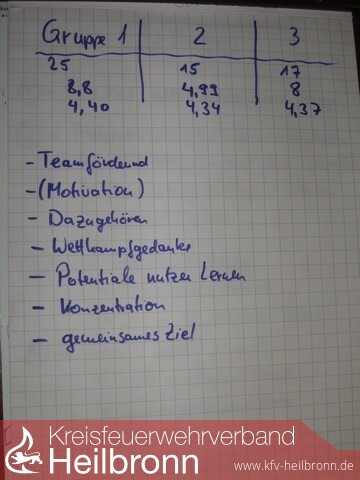 Gruppe 1 2 3
25 15 17
8,8 4,99 8
4,40 4,34 4,37
- Teamfördernd
- (Motivation)
- Dazugehören
- Wettkampfgedanke
- Potentiale nutzen Lernen
- Konzentration
- gemeinsames Ziel
Kreisfeuerwehrverband
Heilbronn
www.kfv-heilbronn.de